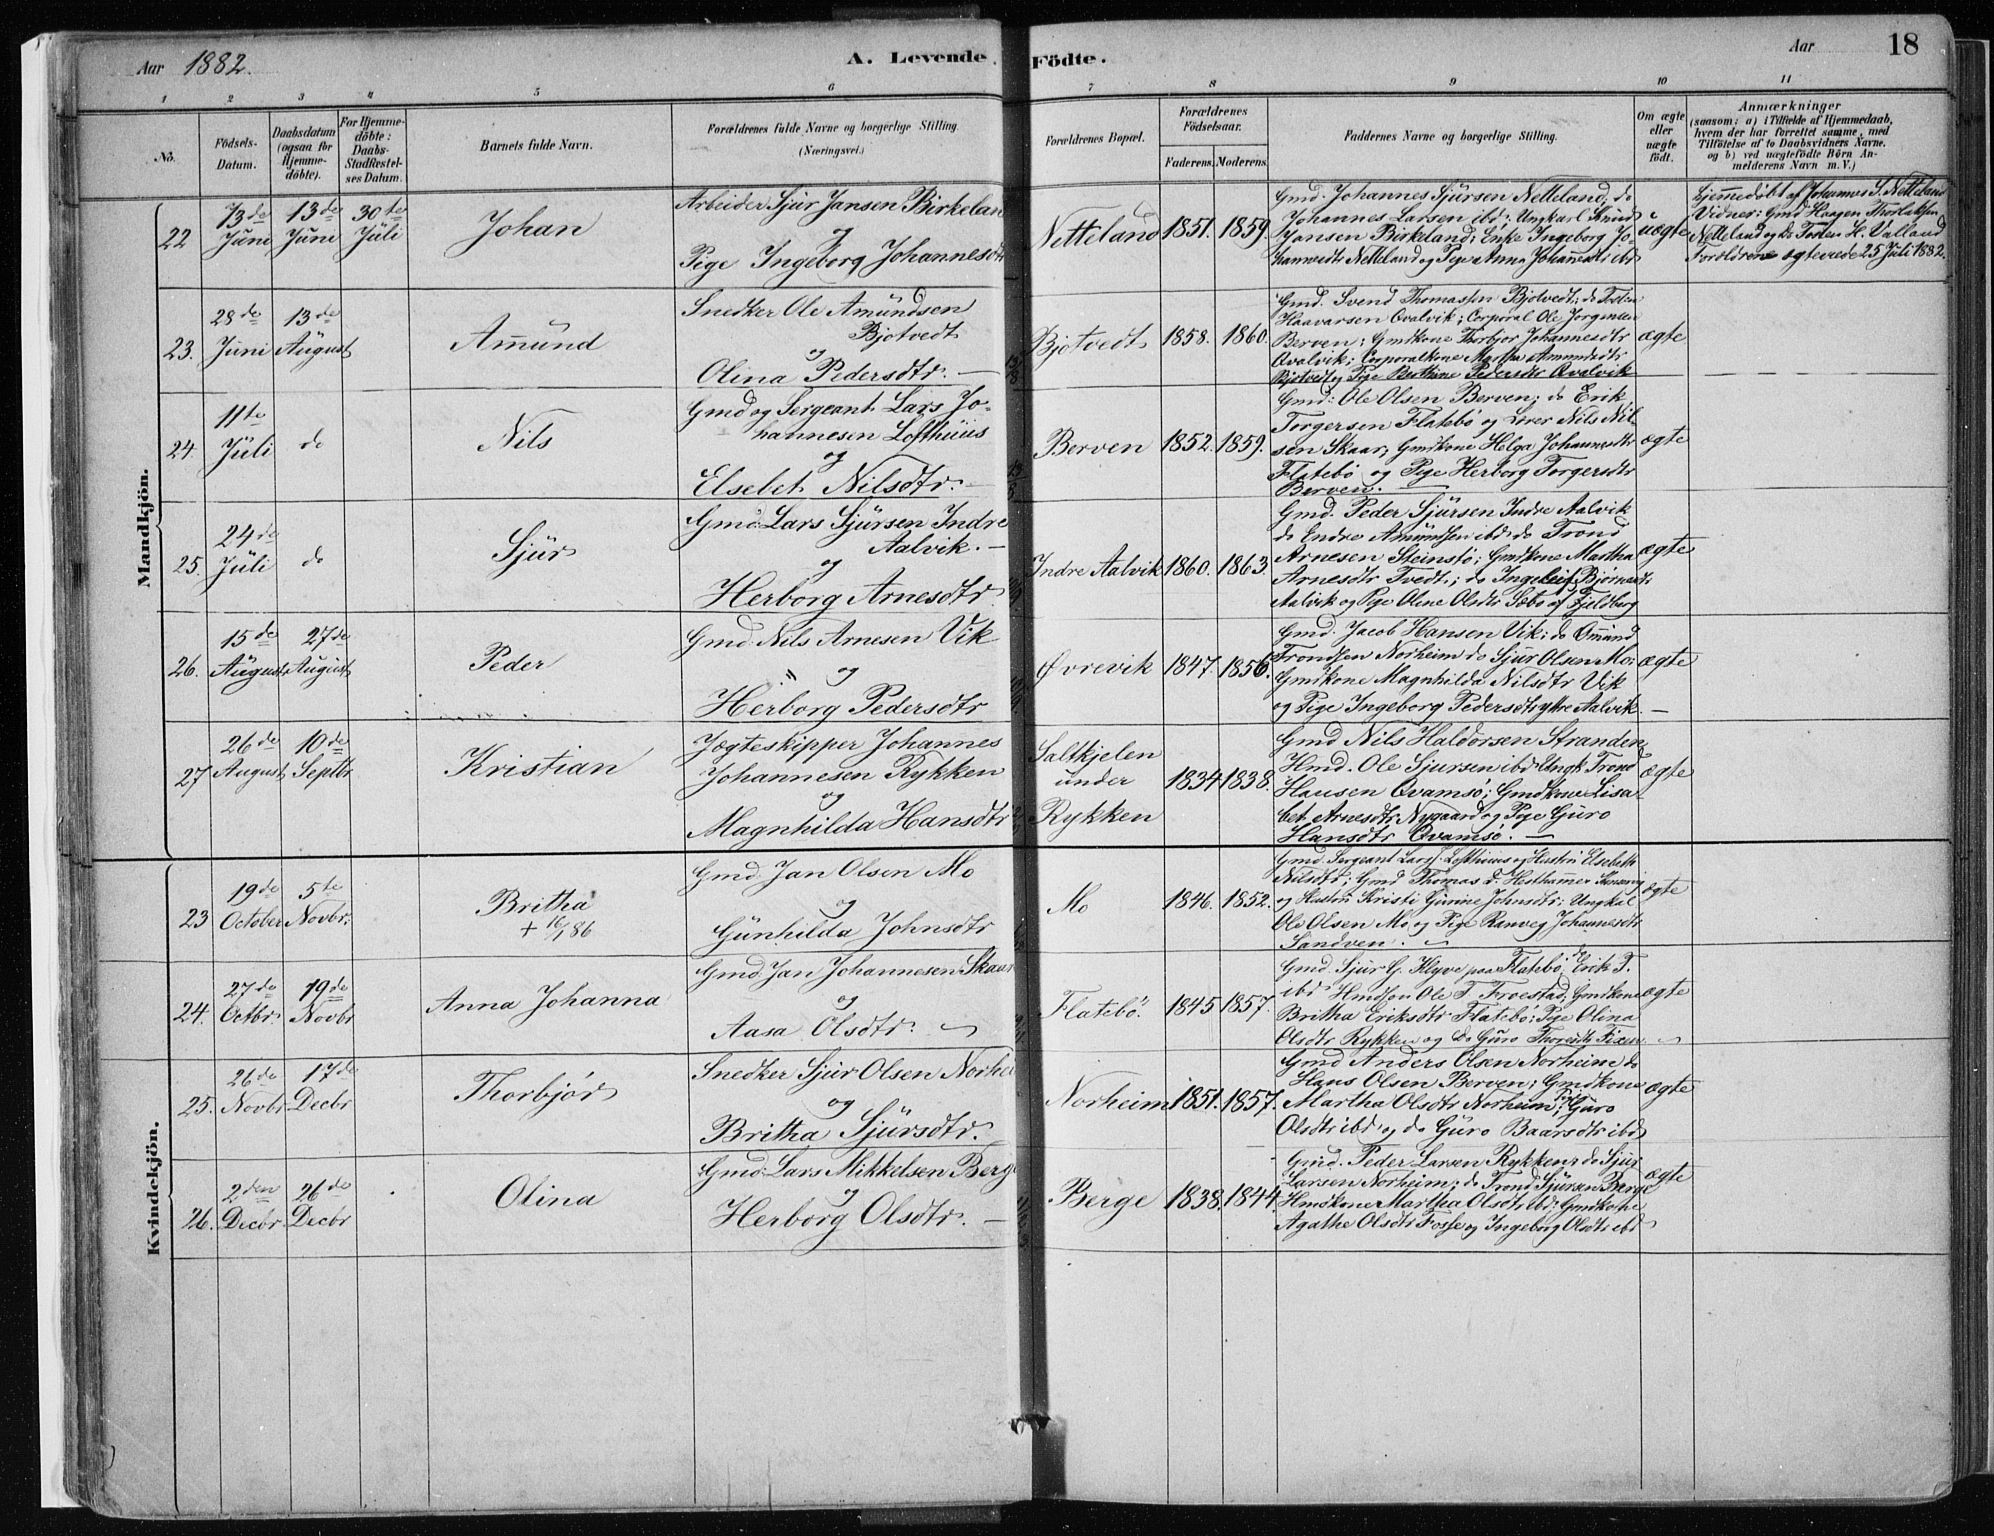 Aar 1882.
A. Levende Födte.
Aar
18
1 2 3 4 5 6 7 8 9 10 11
No.
Födsels-
Datum.
Daabsdatum
(ogsaa for
Hjemme-
döbte).
For Hjemme-
döbte:
Daabs-
Stadfæstel-
ses Datum.
Barnets fulde Navn.
Forældrenes fulde Navne og borgerlige Stilling.
(Næringsvei.)
Forældrenes Bopæl.
Forældrenes
Födselsaar.
Faderens. Moderens.
Faddernes Navne og borgerlige Stilling.
Om ægte
eller
uægte
födt.
Anmærkninger
(saasom: a) i Tilfælde af Hjemmedaab,
hvem der har forrettet samme, med
Tilföielse af to Daabsvidners Navne.
og b) ved uægtefödte Börn An-
melderens Navn m. V.)
Mandkjön.
22
13de
Juni
13de
Juni
30te
Juli
Johan
Arbeider Sjur Jansen Birkelan
og
Pige Ingeborg Johannesdtr
Netteland
1851. 1859
Gmd. Johannes Sjursen Netteland; do
Johannes Larsen ibd: Ungkarl
Jansen Birkeland; Enke Ingeborg Jo-
hannesdtr Netteland og Pige Anna Johannesdtr ibd
uægte
Hjemmedøbt af Johannes S. Netteland
Vidner: Gmd Haagen Thorlaksen
Netteland og do Torten H. Valland
Forældrene ægteviede 25 Juli 1882.
23.
28de
Juni
13de
August
Amund
Snedker Ole Amundsen
Bjotvedt
og
Olina Pedersdtr. —
Bjotvedt
1858. 1860.
Gmd. Svend Thomassen Bjotvedt; do
Haavarsen Qvalvik; Corporal Ole Jorgensen
Berven; Gmdkone Thorbjor Johannesdtr
Qvalvik; Corporalkone Martha Amundsdtr
Bjotvedt og Pige Berthine Pedersdtr Qvalvik
ægte
24.
11te
Juli
do
Nils
Gmd og Sergeant Lars Jo-
hannesen Lofthuus
og
Elsebet Nilsdtr. —
Berven
1852. 1859.
Gmd: Ole Olsen Berven; do Erik
Torgersen Flatebö og Lærer Nils Nil-
sen Skaar; Gmdkone Helga Johannesdtr
Flatebö og Pige Herborg Torgersdtr
Berven.
ægte
25.
24de
Juli
do
Sjur
Gmd: Lars Sjursen Indre
Aalvik. —
og
Herborg Arnesdtr
Indre Aalvik
1860. 1863.
Gmd. Peder Sjursen Indre Aalvik
do Endre Amundsen ibd: do Trond
Arnesen Steinstö; Gmdkone Martha
Arnesdtr Tvedt; do Ingeleif Bjørnesdtr
Aalvik og Pige Oline Olsdtr Sæbo af Fjeldberg
ægte
26.
15de
August
27de
August
Peder
Gmd. Nils Arnesen Vik
og
Herborg Pedersdtr
Øvrevik
1847. 1856.
Gmd. Jacob Hansen Vik; do Omund
Trondsen Norheim do Sjur Olsen Mo;
Gmdkone Magnhilda Nilsdtr Vik
og Pige Ingeborg Pedersdtr ytre Aalvik. —
ægte
27
26de
August
10de
Septbr
Kristian
Jægteskipper Johannes
Johannesen Rykken
og
Magnhilda Hansdtr
Saltkjelen
under
Rykken
1834 1838.
Gmd Nils Haldorsen Stranden
Hmd. Ole Sjursen ibd: Ungk. Trond
Hansen Qvamsö; Gmdkone Lisa-
bet Arnesdtr Nygaard og Pige Guro
Hansdtr Qvamsö. —
ægte
Kvindekjön.
23
19de
October
5te
Novbr.
Britha
+ 16/1 86
Gmd. Jan Olsen Mo
og
Günhilda Johnsdtr
Mo
1846. 1852.
Gmd. Sergeant Lars J. Lofthuus og Hustru Elsebeth
Nilsdtr; Gmd Thomas d. Hesthammer
og Hustru Kristi Gurine Johnsdtr; Ungkal
Ole Olsen Mo og Pige Ranveg Johannesdtr
Sandven.
ægte
24.
27de
Octbr.
19de
Novbr
Anna Johanna
Gmd. Jan Johannesen Skaar
og
Aasa Olsdtr.
Flatebö.
1845 1857.
Gmd. Sjur G. Klyve paa Flatebö, do Erik T.
ibd Hmdson Ole T. Froestad; Gmdkone
Britha Eriksdtr Flatebö; Pige Olina
Olsdtr Rykken og do Guro Thoresdtr Fixen
ægte
25.
26de
Novbr
17de
Decbr
Thorbjør
Snedker Sjur Olsen Norhei
og
Britha Sjursdtr.
Norheim
1851. 1857.
Gmd Anders Olsen Norheim do
Hans Olsen Berven; Gmdkone
Martha Olsdtr Norheim; Pige Guro
Olsdtr ibd og do Guro Baarsdtr ibd
ægte
26.
2den
Decbr.
26de
Decbr
Olina
Gmd: Lars Mikkelsen Berg
og
Herborg Olsdtr. —
Berge
1838. 1844
Gmd. Peder Larsen Rykken; do Sjur
Larsen Norheim; do Trond Sjursen Berge
Hmdkone Martha Olsdtr ibd; Gmdkone
Agathe Olsdtr Fosse og Ingeborg Olsdtr ibd
ægte